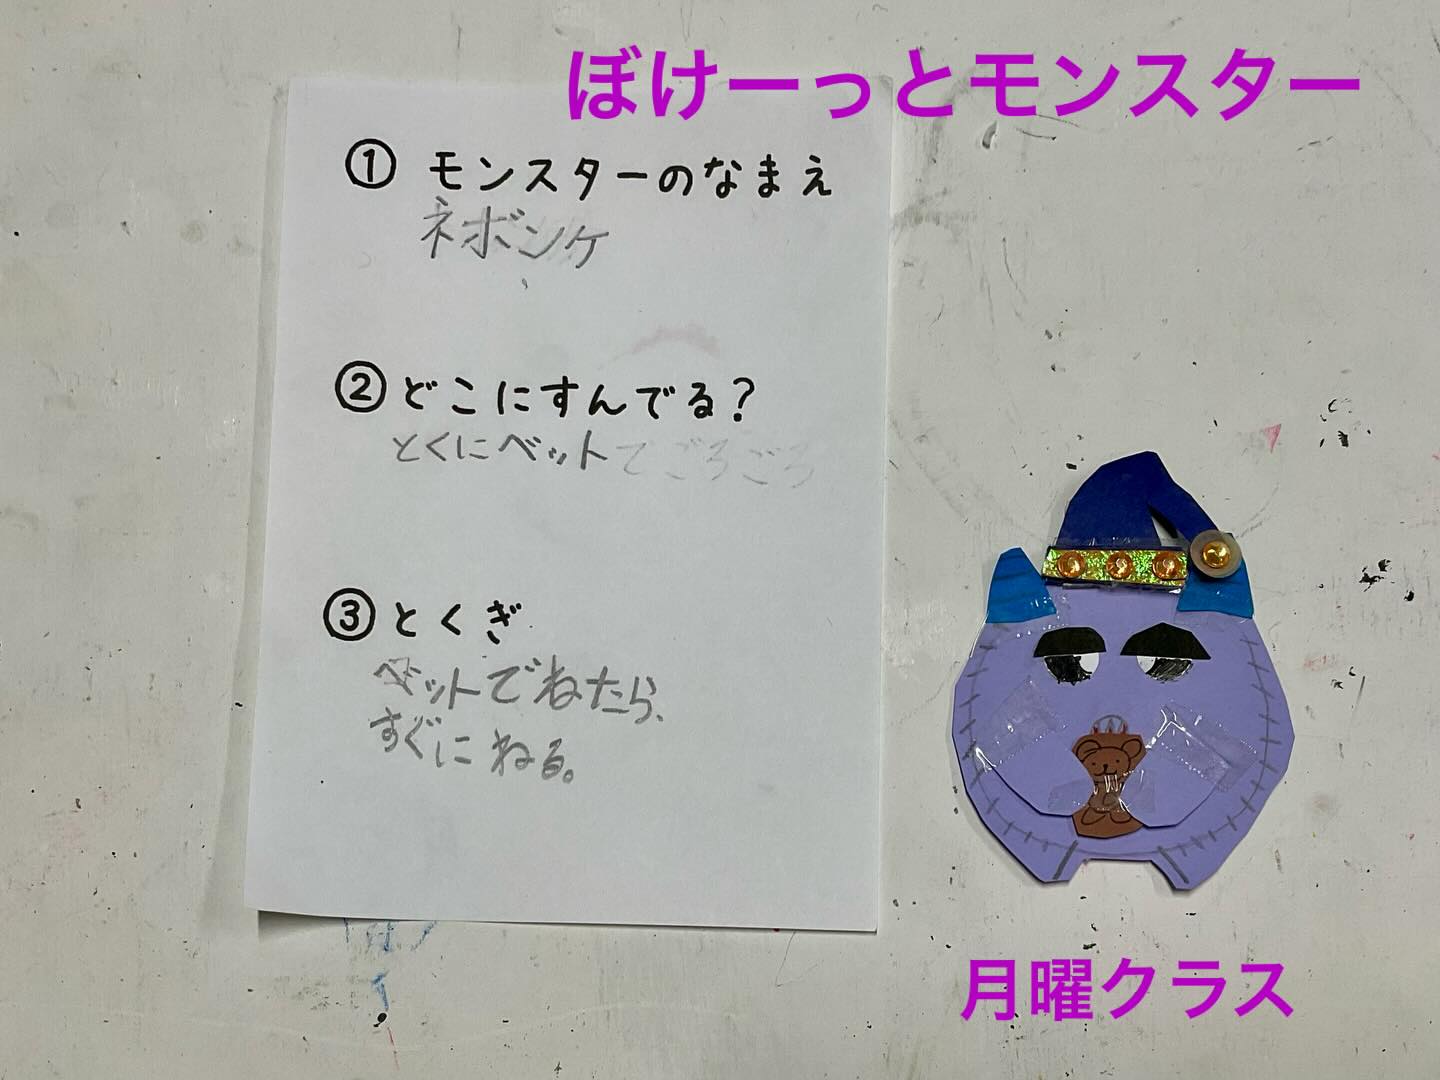 ぼけーっとモンスター
① モンスターのなまえ
ネボンケ
② どこにすんでる?
とくにベットでごろごろ
③ とくぎ
ベットでねたら、
すぐにねる。
月曜クラス